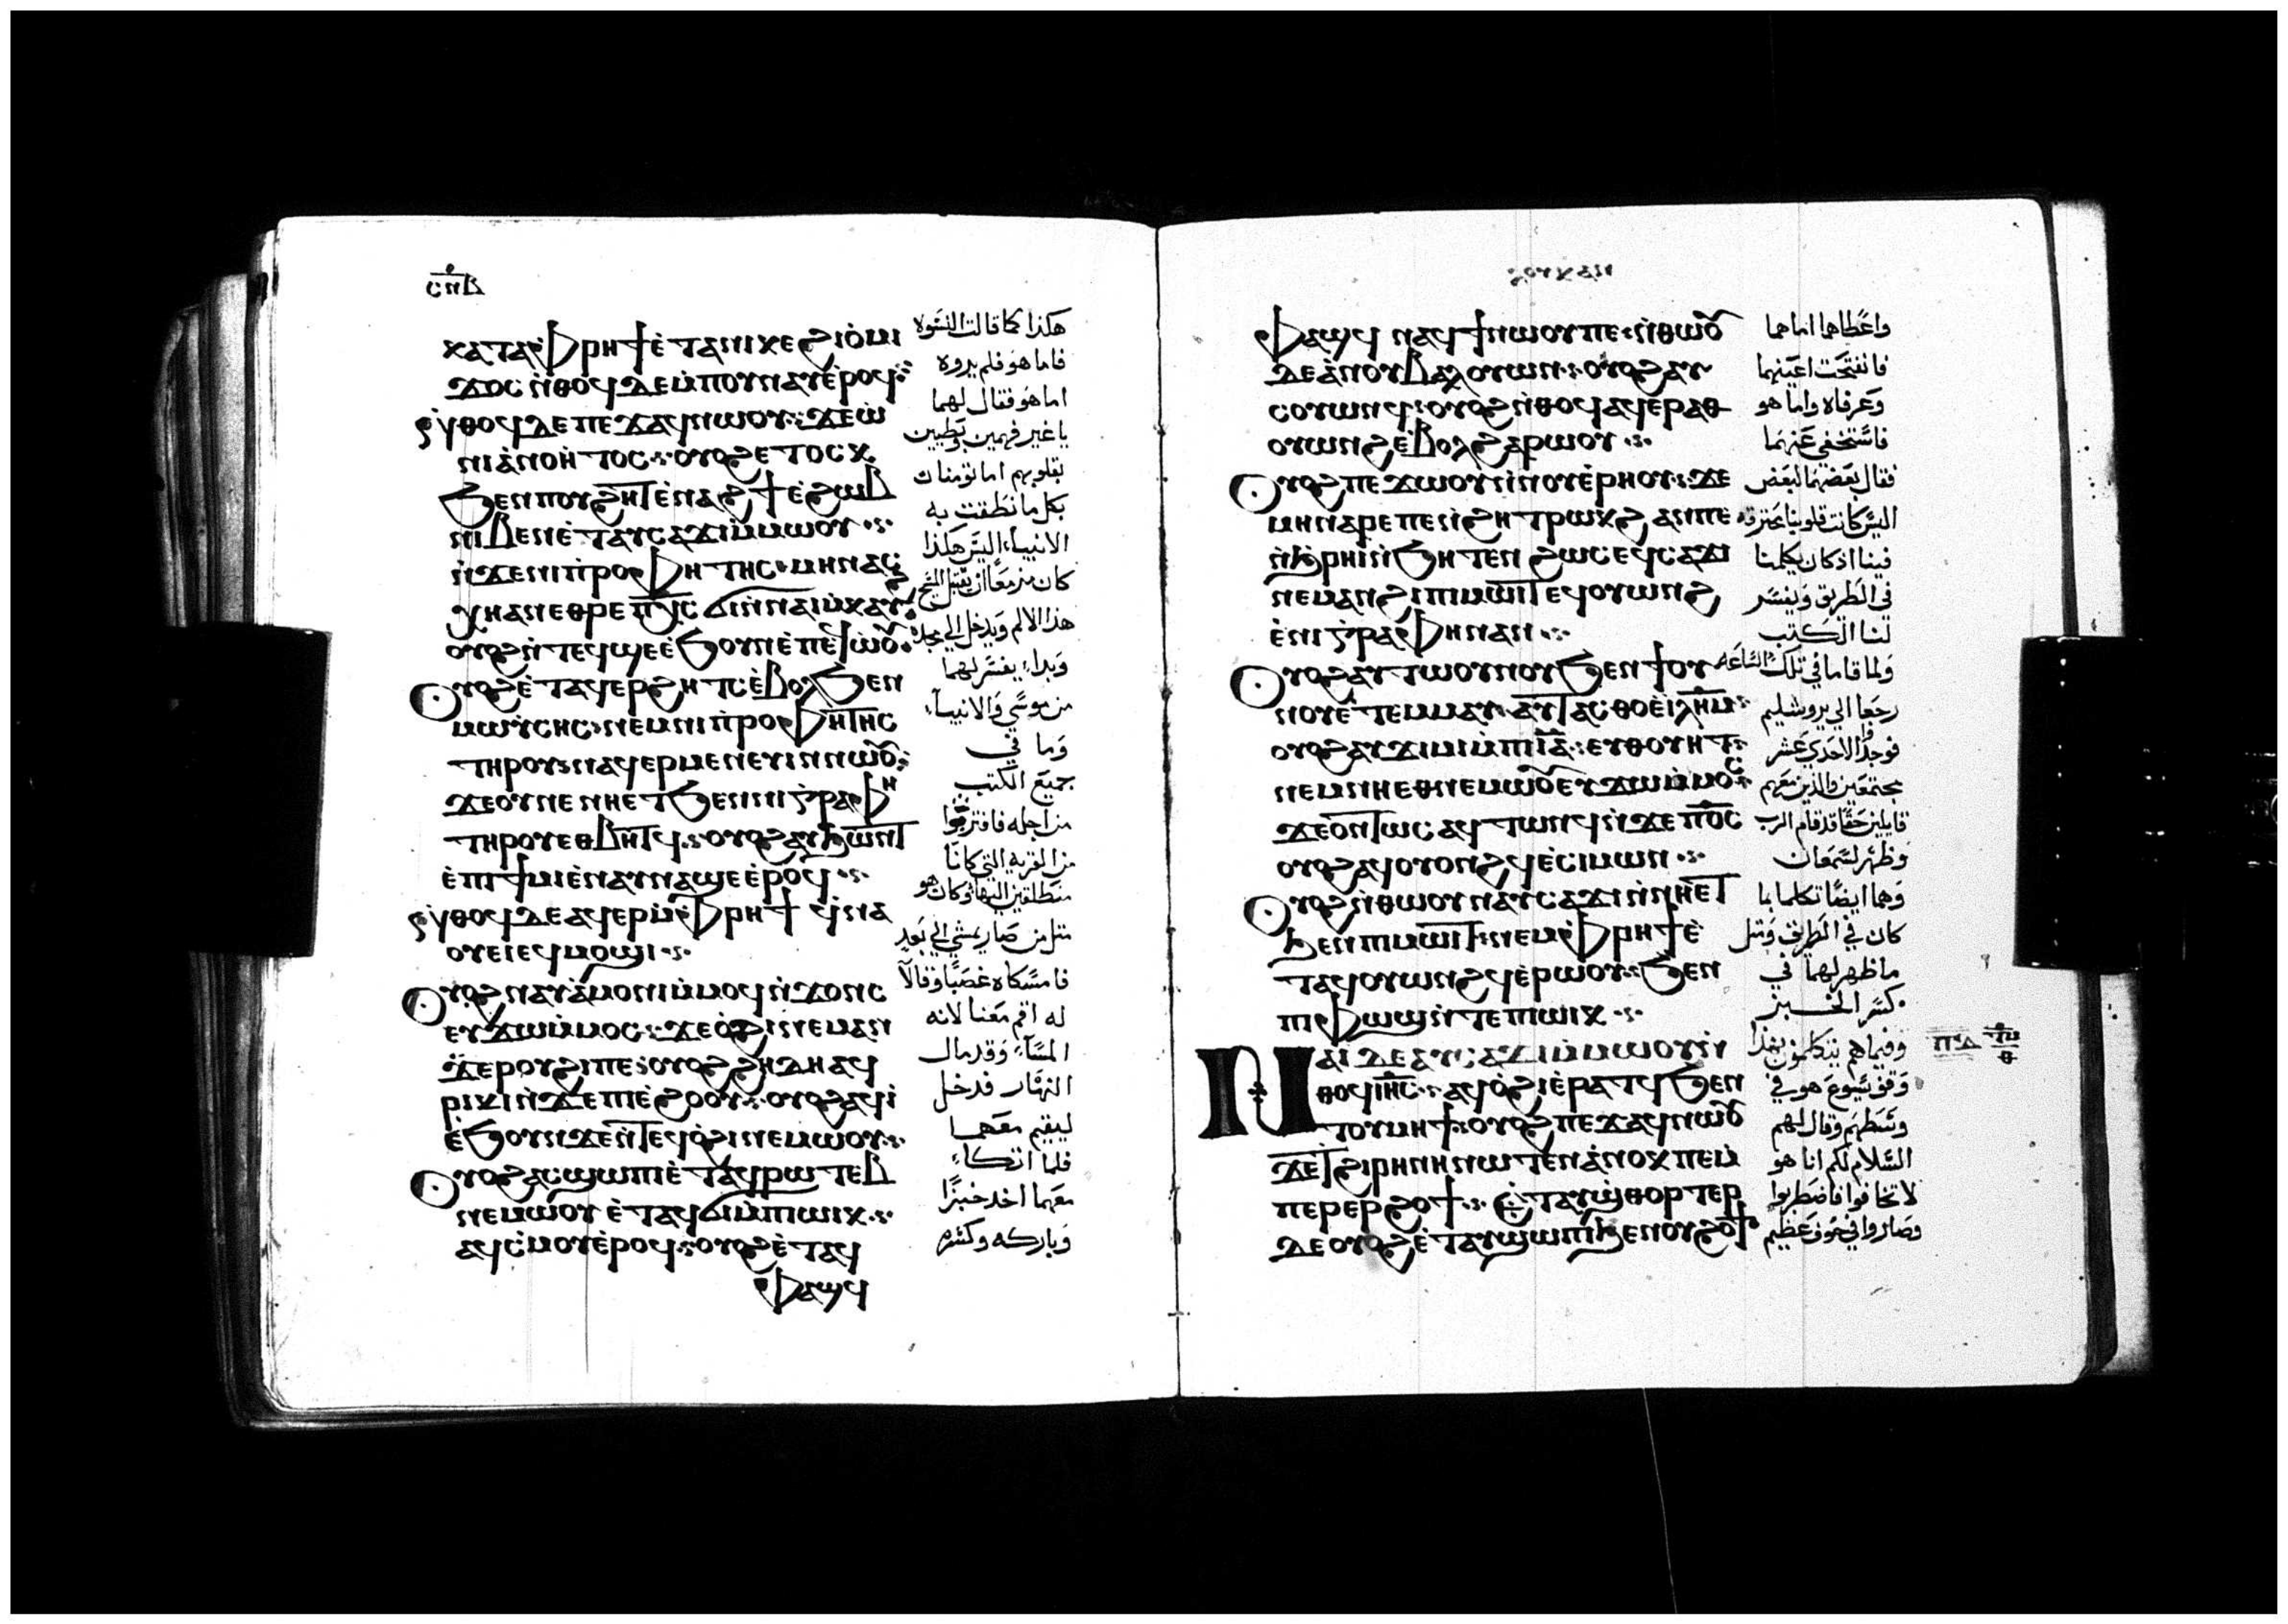 ⲥⲡⲇ
ⲕⲁⲧⲁⲫⲣⲏϯⲉ̀ⲧⲁⲛⲓⲕⲉϩⲓⲟ̀ⲙⲓ
ϫⲟⲥ ⲛ̀ⲑⲟϥ ⲇⲉⲙ̀ⲡⲟⲩⲛⲁⲩⲉ̀ⲣⲟϥ⁘
ⲛ̀ⲑⲟϥ ⲇⲉ ⲡⲉϫⲁϥⲛⲱⲟⲩ⁘ ϫⲉⲱ̀
ⲛⲓⲁ̀ⲛⲟⲏ̀ⲧⲟⲥ⁘ ⲟⲩⲟϩ ⲉⲧⲟⲥⲕ
ϧⲉⲛⲡⲟⲩϩⲏⲧ ⲉ̀ⲛⲁϩϯⲉ̀ϩⲱⲃ
ⲛⲓⲃⲉⲛⲉ̀ⲧⲁⲩⲥⲁϫⲓⲙ̀ⲙⲱⲟⲩ⁘
ⲛ̀ϫⲉⲛⲓⲡ̀ⲣⲟⲫⲏⲧⲏⲥ ⲙⲏⲛⲁⲥ
ϩⲱϯ ⲡⲭ̅ⲥ ϭⲓⲛ̀ⲛⲁⲓⲙ̀ⲕⲁⲩϩ
ⲟⲩⲟϩ ⲛ̀ⲧⲉϥϣⲉⲉ̀ϧⲟⲩⲛⲉ̀ⲡⲉϥⲱ̀ⲟⲩ
ⲟⲩⲟϩ ⲉ̀ⲧⲁϥⲉⲣϩⲏⲧⲥⲉ̀ⲃⲟⲗϧⲉⲛ
ⲙⲱⲩ̀ⲥⲏⲥ ⲛⲉⲙⲛⲓⲡ̀ⲣⲟⲫⲏⲧⲏⲥ
ⲧⲏⲣⲟⲩ ⲛⲁϥⲉⲣⲙⲉⲛⲉⲩⲓⲛⲛⲱⲟⲩ⁘
ϫⲉⲟⲩⲡⲉ ⲛⲏⲉⲧϧⲉⲛⲛⲓⲅ̀ⲣⲁⲫⲏ
ⲧⲏⲣⲟⲩⲉⲑⲃⲏⲧϥ⁘ ⲟⲩⲟϩ ⲁⲩϧⲱⲛⲧ
ⲉ̀ⲡⲓϯⲙⲓⲉ̀ⲛⲁⲩⲛⲁϣⲉⲉ̀ⲣⲟϥ⁘
ⲛ̀ⲑⲟϥ ⲇⲉⲁϥⲉⲣⲙ̀ⲫⲣⲏϯ ϥ̀ⲛⲁ
ⲟⲩⲉⲓⲉϥⲙⲟϣⲓ⁘
ⲟⲩⲟϩ ⲛⲁⲩⲁ̀ⲙⲟⲛⲓⲙ̀ⲙⲟϥⲛ̀ϫⲟⲛⲥ
ⲉⲩϫⲱⲙ̀ⲙⲟⲥ⁘ ϫⲉⲟ̀ϩⲓⲛⲉⲙⲁⲛ
ϫⲉⲣⲟⲩϩⲓⲡⲉ ⲟⲩⲟϩ ϩⲏⲇⲏⲁϥ
ⲣⲓⲕⲓⲛ̀ϫⲉⲡⲓⲉ̀ϩⲟⲟⲩ⁘ ⲟⲩⲟϩ ⲁϥⲓ̀
ⲉ̀ϧⲟⲩⲛϫⲉⲛ̀ⲧⲉϥⲟ̀ϩⲓⲛⲉⲙⲱⲟⲩ⁘
ⲟⲩⲟϩ ⲁⲥϣⲱⲡⲓⲉ̀ⲧⲁϥⲣⲱⲧⲉⲃ
ⲛⲉⲙⲱⲟⲩ ⲉ̀ⲧⲁϥϭⲓⲙ̀ⲡⲓⲱⲓⲕ⁘
ⲁϥⲥ̀ⲙⲟⲩⲉ̀ⲣⲟϥ⁘ ⲟⲩⲟϩ ⲉ̀ⲧⲁϥ
ⲫⲁϣϥ
هكذا كما قالت النسوة
فاما هو فلم يروه
اما هو فقال لهما
يا غير فهمين وبطيين
بقلوبهم اما تومنا ك
بكل ما نطقت به
الانبياء اليس هكذا
كان مزمعا ان يقبل المسيح
هذا الالم ويدخل الي مجده
وبداء يفسر لهما
من موسي والانبياء
وما في
جميع الكتب
من اجله فاقتربوا
من القرية التي كانا
منطلقين اليها وكان هو
مثل من صار يمشي الي بعيد
فامسكاه غصبا وقالا
له اقم معنا لانه
المساء وقد مال
النهار فدخل
ليقيم معهما
فلما اتكاء
معهما اخد خبزا
وباركه وكسره
ⲫⲁϣϥ ⲛⲁϥϯⲛⲱⲟⲩⲡⲉ ⲛ̀ⲑⲱⲟⲩ
ⲇⲉⲁ̀ⲛⲟⲩⲃⲁⲗⲟⲩⲱⲛ⁘ ⲟⲩⲟϩ ⲁⲩ
ⲥⲟⲩⲱⲛϥ ⲟⲩⲟϩ ⲛ̀ⲑⲟϥ ⲁϥⲉⲣⲁⲑ
ⲟⲩⲱⲛϩⲉ̀ⲃⲟⲗϩⲁⲣⲱⲟⲩ⁘
ⲟⲩⲟϩ ⲡⲉϫⲱⲟⲩⲛ̀ⲛⲟⲩⲉ̀ⲣⲏⲟⲩ⁘ ϫⲉ
ⲙⲏⲛⲁⲣⲉⲡⲉⲛϩⲏⲧⲣⲱⲕϩ ⲁⲛⲡⲉ
ⲛ̀ϧⲣⲏⲓⲛ̀ϧⲏⲧⲉⲛ ϩⲱⲥⲉϥⲥⲁϫⲓ
ⲛⲉⲙⲁⲛϩⲓⲡⲓⲙⲱⲓⲧⲉϥⲟⲩⲱⲛϩ
ⲉ̀ⲛⲓⲅ̀ⲣⲁⲫⲏⲛⲁⲛ⁘
ⲟⲩⲟϩ ⲁⲩⲧⲱⲟⲩⲛⲟⲩϧⲉⲛϯⲟⲩ
ⲛⲟⲩⲉ̀ⲧⲉⲙⲙⲁⲩ ⲁⲩⲧⲁⲥⲑⲟⲉ̀ⲓ̀ⲗⲏⲙ⁘
ⲟⲩⲟϩ ⲁⲩϫⲓⲙⲓⲙ̀ⲡⲓⲓ̅ⲁ̅⁘ ⲉⲩⲑⲟⲩⲏⲧ⁘
ⲛⲉⲙⲛⲏⲉⲑⲛⲉⲙⲱⲟⲩ ⲉⲩϫⲱⲙ̀ⲙⲟⲥ⁘
ϫⲉⲟⲛⲧⲱⲥ ⲁϥⲧⲱⲛϥⲛ̀ϫⲉⲡϭⲟⲓⲥ
ⲟⲩⲟϩ ⲁϥⲟⲩⲟⲛϩϥⲉ̀ⲥⲓⲙⲱⲛ⁘
ⲟⲩⲟϩ ⲛ̀ⲑⲱⲟⲩⲛⲁⲩⲥⲁϫⲓⲛ̀ⲛⲏⲉⲧ
ϧⲉⲛⲡⲓⲙⲱⲓⲧ⁘ ⲛⲉⲙⲫⲣⲏϯⲉ̀
ⲧⲁϥⲟⲩⲱⲛϩϥⲉ̀ⲣⲱⲟⲩ⁘ ϧⲉⲛ
ⲡⲓⲫⲱϣⲛ̀ⲧⲉⲡⲓⲱⲓⲕ⁘
ⲛⲁⲓ ⲇⲉⲁⲩⲥⲁϫⲓⲙ̀ⲙⲱⲟⲩⲛ̀
ⲑⲟϥⲓⲏ̅ⲥ̅⁘ ⲁϥⲟ̀ϩⲓⲉ̀ⲣⲁⲧϥϧⲉⲛ
ⲧⲟⲩⲙⲏϯ⁘ ⲟⲩⲟϩ ⲡⲉϫⲁϥⲛⲱⲟⲩ
ϫⲉⲧϩⲓⲣⲏⲛⲏⲛⲱⲧⲉⲛ ⲁ̀ⲛⲟⲕⲡⲉⲙ̀
ⲡⲉⲣⲉⲣϩⲟϯ⁘ ⲉ̀ⲧⲁⲩϣ̀ⲑⲟⲣⲧⲉⲣ
ⲇⲉⲟⲩⲟϩ ⲉ̀ⲧⲁⲩϣⲱⲡⲓϧⲉⲛⲟⲩϩⲟϯ
واعطاها اماهما
فانفتحت اعينهما
وعرفاه واما هو
فاستخفي عنهما
فقال بعضهما لبعض
اليس كانت قلوبنا تحترق
فينا اذ كان يكلمنا
في الطريق ويفسر
لنا الكتب
ولما قاما في تلك الساعه
رجعا الي يروشليم
فوجدا الاحدي عشر
مجتمعين والذين معهم
قايلين حقا قد قام الرب
وظهر لسمعان
وهما ايضا تكلما بما
كان في الطريق ومثل
ما ظهر لهما في
كسر الخبز
وفيما هم يتكلمون بهذا
وقف يسوع هو في
وسطهم وقال لهم
السلام لكم انا هو
لا تخافوا فاضطربوا
وصاروا في خوف عظيم